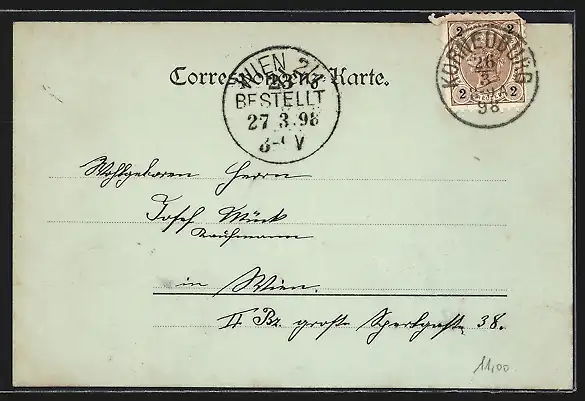 Correspondenz-Karte.
2 2
2 2
KORNEUBURG
26
3
98
WIEN 2/
BESTELLT
27.3.98
Wohlgeboren Herrn
Josef Mück
Kaufmann
in Wien.
II Bz. große Sperlgasse 38.
11,00